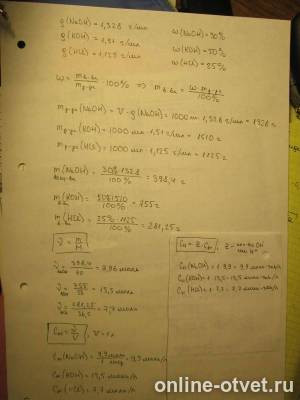 ρ(NaOH) = 1,328 г/мл ω(NaOH) = 30%
ρ(KOH) = 1,51 г/мл ω(KOH) = 50%
ρ(HCl) = 1,125 г/мл ω(HCl) = 25%
ω = m в-ва / m р-ра · 100% ⇒ m в-ва = ω · m р-ра / 100%
m р-ра (NaOH) = V · ρ(NaOH) = 1000 мл · 1,328 г/мл = 1328 г
m р-ра (KOH) = 1000 мл · 1,51 г/мл = 1510 г
m р-ра (HCl) = 1000 мл · 1,125 г/мл = 1125 г
m (NaOH) = 30% · 1328 / 100% = 398,4 г
m (KOH) = 50% · 1510 / 100% = 755 г
m (HCl) = 25% · 1125 / 100% = 281,25 г
ν = m / M
ν = 398,4 / 40 = 9,96 моль
ν = 755 / 56 = 13,5 моль
ν = 281,25 / 36,5 = 7,7 моль
Cм = ν / V, V = 1 л
Cм (NaOH) = 9,9 моль
Cм (KOH) = 13,5 моль/л
Cм (HCl) = 7,7 моль/л
Cн = z · Cм, z -
Cн (NaOH) = 1 · 9,9 = 9,9
Cн (KOH) = 13,5 · 1 = 13,5
Cн (HCl) = 1 · 7,7 = 7,7
online-otvet.ru